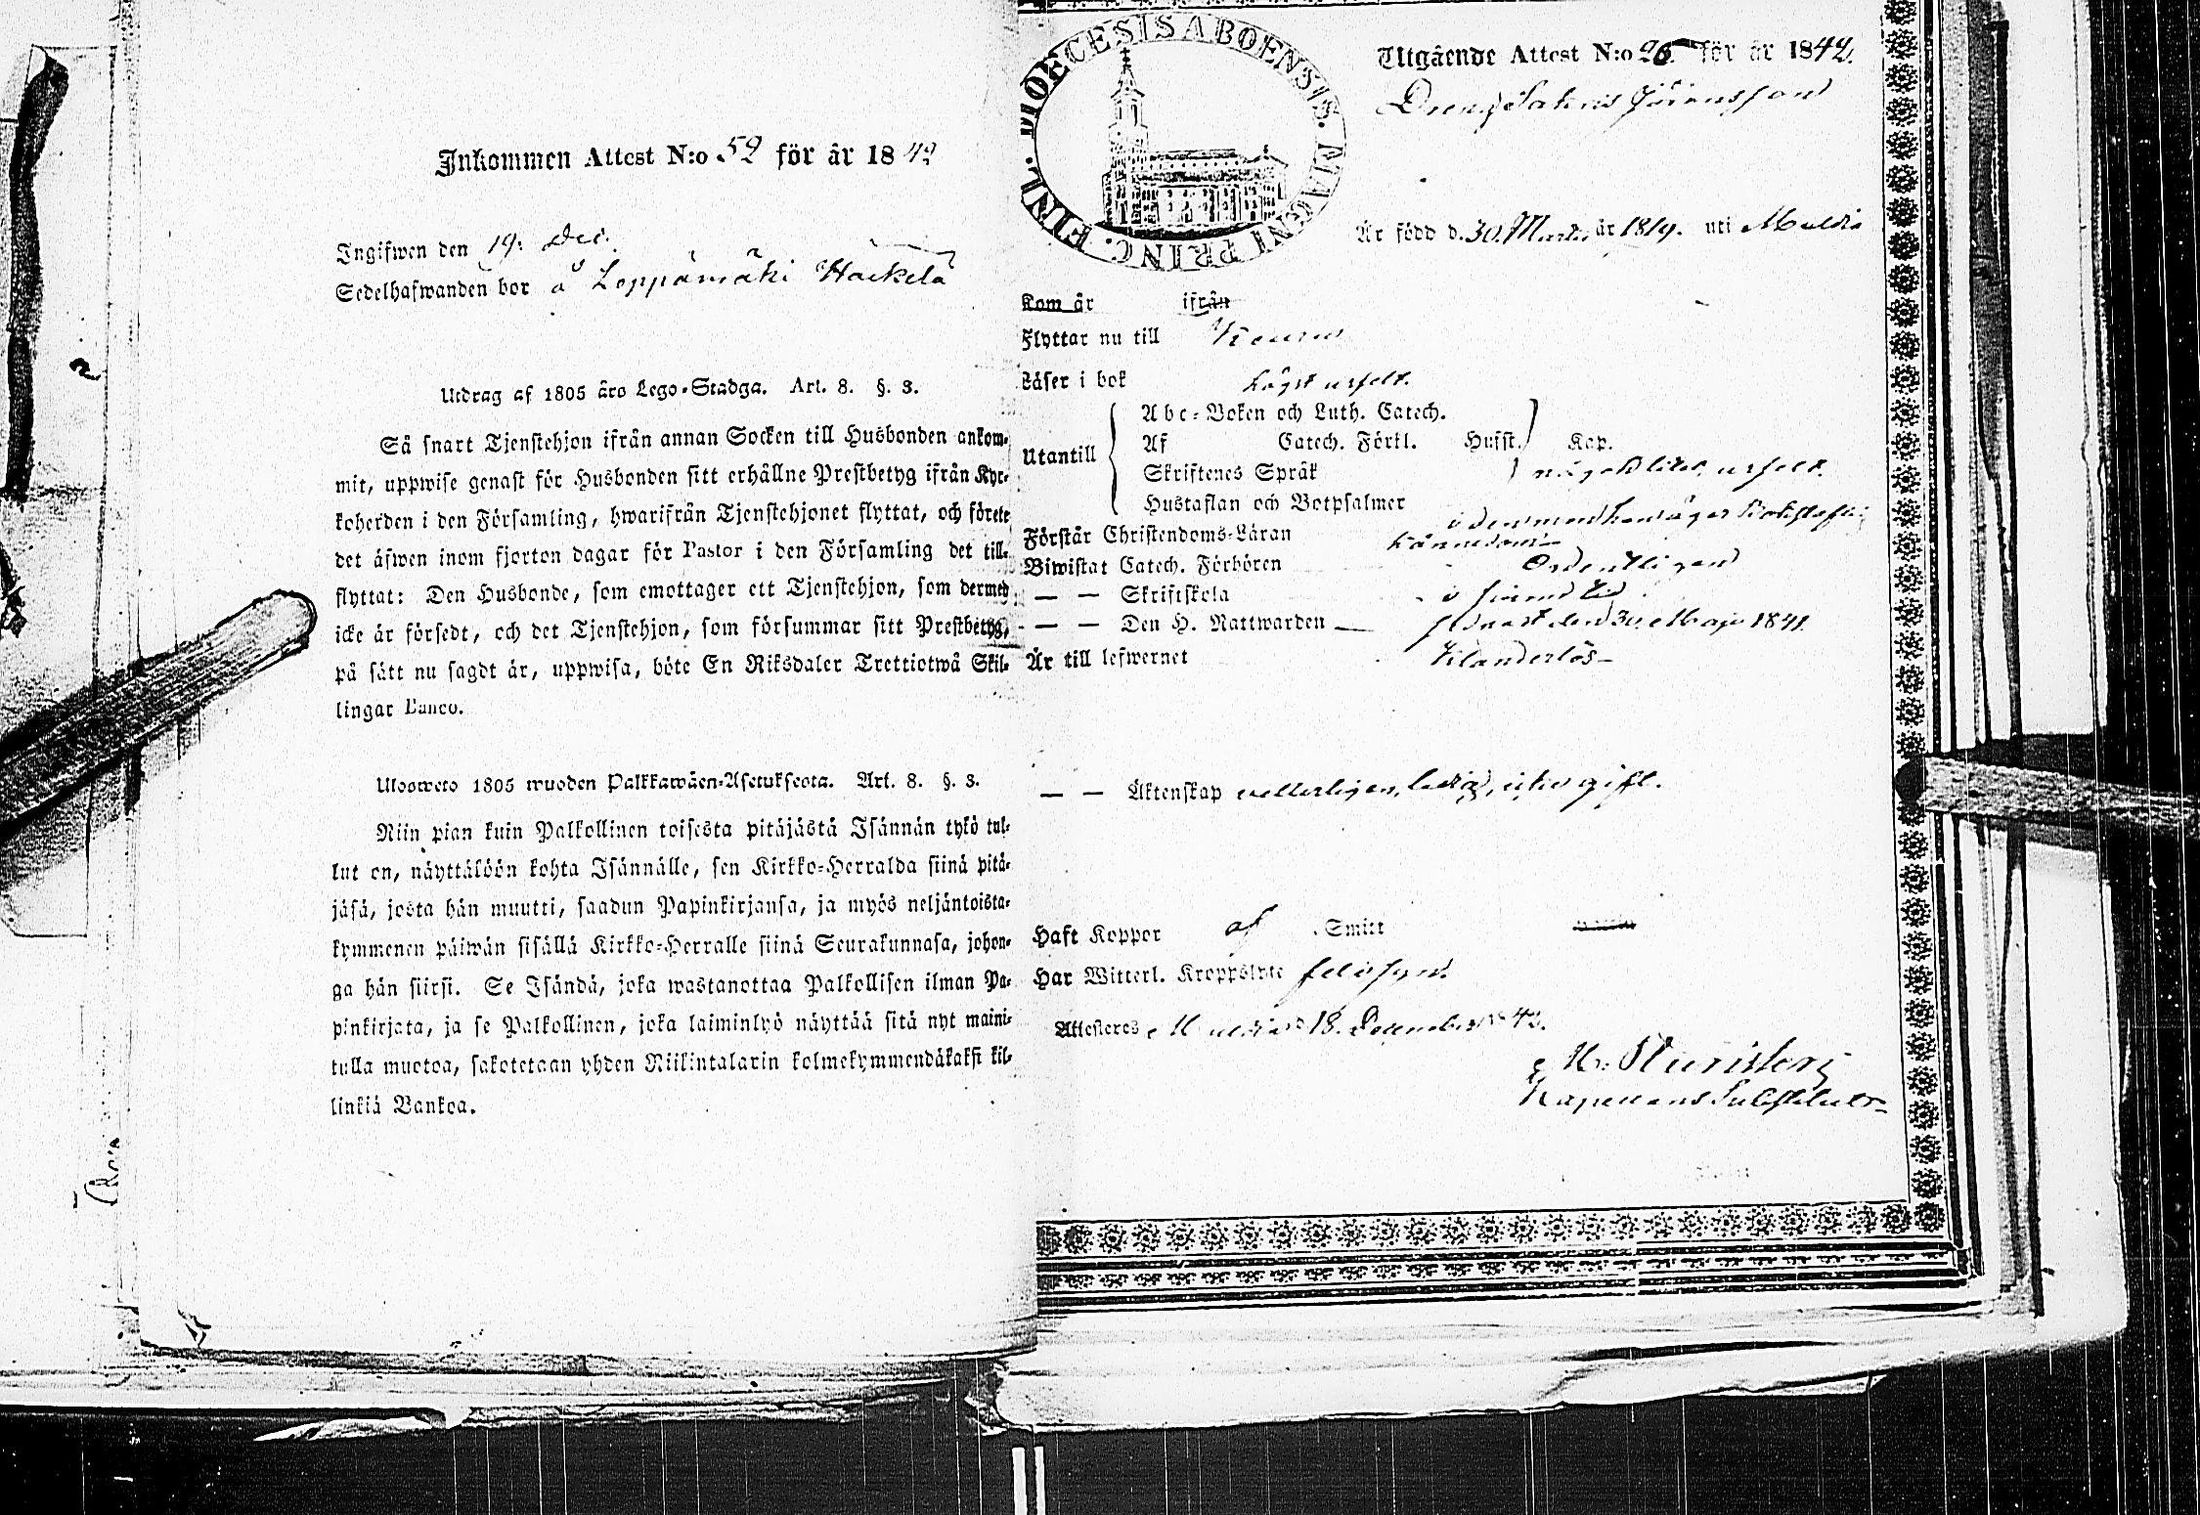 Inkommen Attest N:o 52 för år 1842
Ingifwen den 19: Dec:
Sedelhafwanden bor å Leppämäki Häckelä
Utdrag af 1805 års Lego-Stadga. Art. 8. §. 3.
Så snart Tjenstehjon ifrån annan Socken till Husbonden ankom-
mit, uppwise genast för Husbonden sitt erhållne Prestbetyg ifrån Kyr-
koherden i den Församling, hwarifrån Tjenstehjonet flyttat, och förete
det äfwen inom fjorton dagar för Pastor i den Församling det till-
flyttat: Den Husbonde, som emottager ett Tjenstehjon, som dermed
icke är försedt, och det Tjenstehjon, som försummar sitt Prestbetyg,
på sätt nu sagdt är, uppwisa, böte En Riksdaler Trettiotwå Skil-
lingar Banco.
Uloswето 1805 wuoden Palkkawäen-Asetuksesta. Art. 8. §. 3.
Niin pian kuin Palkollinen toisesta pitäjästä Isännän tykö tul-
lut on, näyttäköön kohta Isännälle, sen Kirkko-Herralda siinä pitä-
jäsä, josta hän muutti, saadun Papinkirjansa, ja myös neljäntoista-
kymmenen päiwän sisällä Kirkko-Herralle siinä Seurakunnasa, johon-
ga hän siirsi. Se Isändä, joka wastanottaa Palkollisen ilman Pa-
pinkirjata, ja se Palkollinen, joka laiminlyö näyttää sitä nyt maini-
tulla muotoa, sakotetaan yhden Riikintalarin kolmekymmendäkaksi kil-
linkiä Bankoa.
DIOECESIS ABOENSIS. MAGNI PRINC. FINL.
Utgående Attest N:o 26 för år 1842.
Dreng Sakris Göransson
Är född d. 30. Martii år 1819. uti Muldia
Kom år ifrån
Flyttar nu till Keuru
Läser i bok högst uselt.
Utantill
Abc-Boken och Luth. Catech.
Af Catech. Förkl. Husst. Kap.
Skriftenes Språk något litet, uselt.
Hustaflan och Botpsalmer
Förstår Christendoms-Läran
kännedom
Biwistat Catech. Förhören Ordentligen
— — Skriftskola
— — Den H. Nattwarden senast den 30. Maji 1841.
Är till lefwernet Klanderlös
— — Äktenskap veterligen, ledig, icke gift.
Haft Koppor af Smitt
Har Witterl. Kroppslyte
Attesteras, Muldia d. 18. December 1842.
Kapellans Substitut